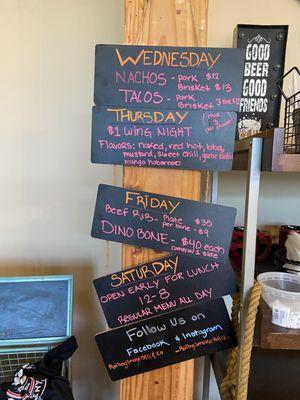 WEDNESDAY
NACHOS - pork $12
Brisket $13
TACOS - pork
Brisket 3 for $12
THURSDAY
$1 WING NIGHT
Flavors: naked, red hot, bbq,
mustard, sweet chili, garlic
mango habanero
FRIDAY
Beef Ribs - Plate $35
per bone - $9
DINO BONE - $40 each
comes w/ 2 sides
SATURDAY
OPEN EARLY FOR LUNCH
12-8
REGULAR MENU ALL DAY
Follow Us on
Facebook & Instagram
GOOD
BEER
GOOD
FRIENDS